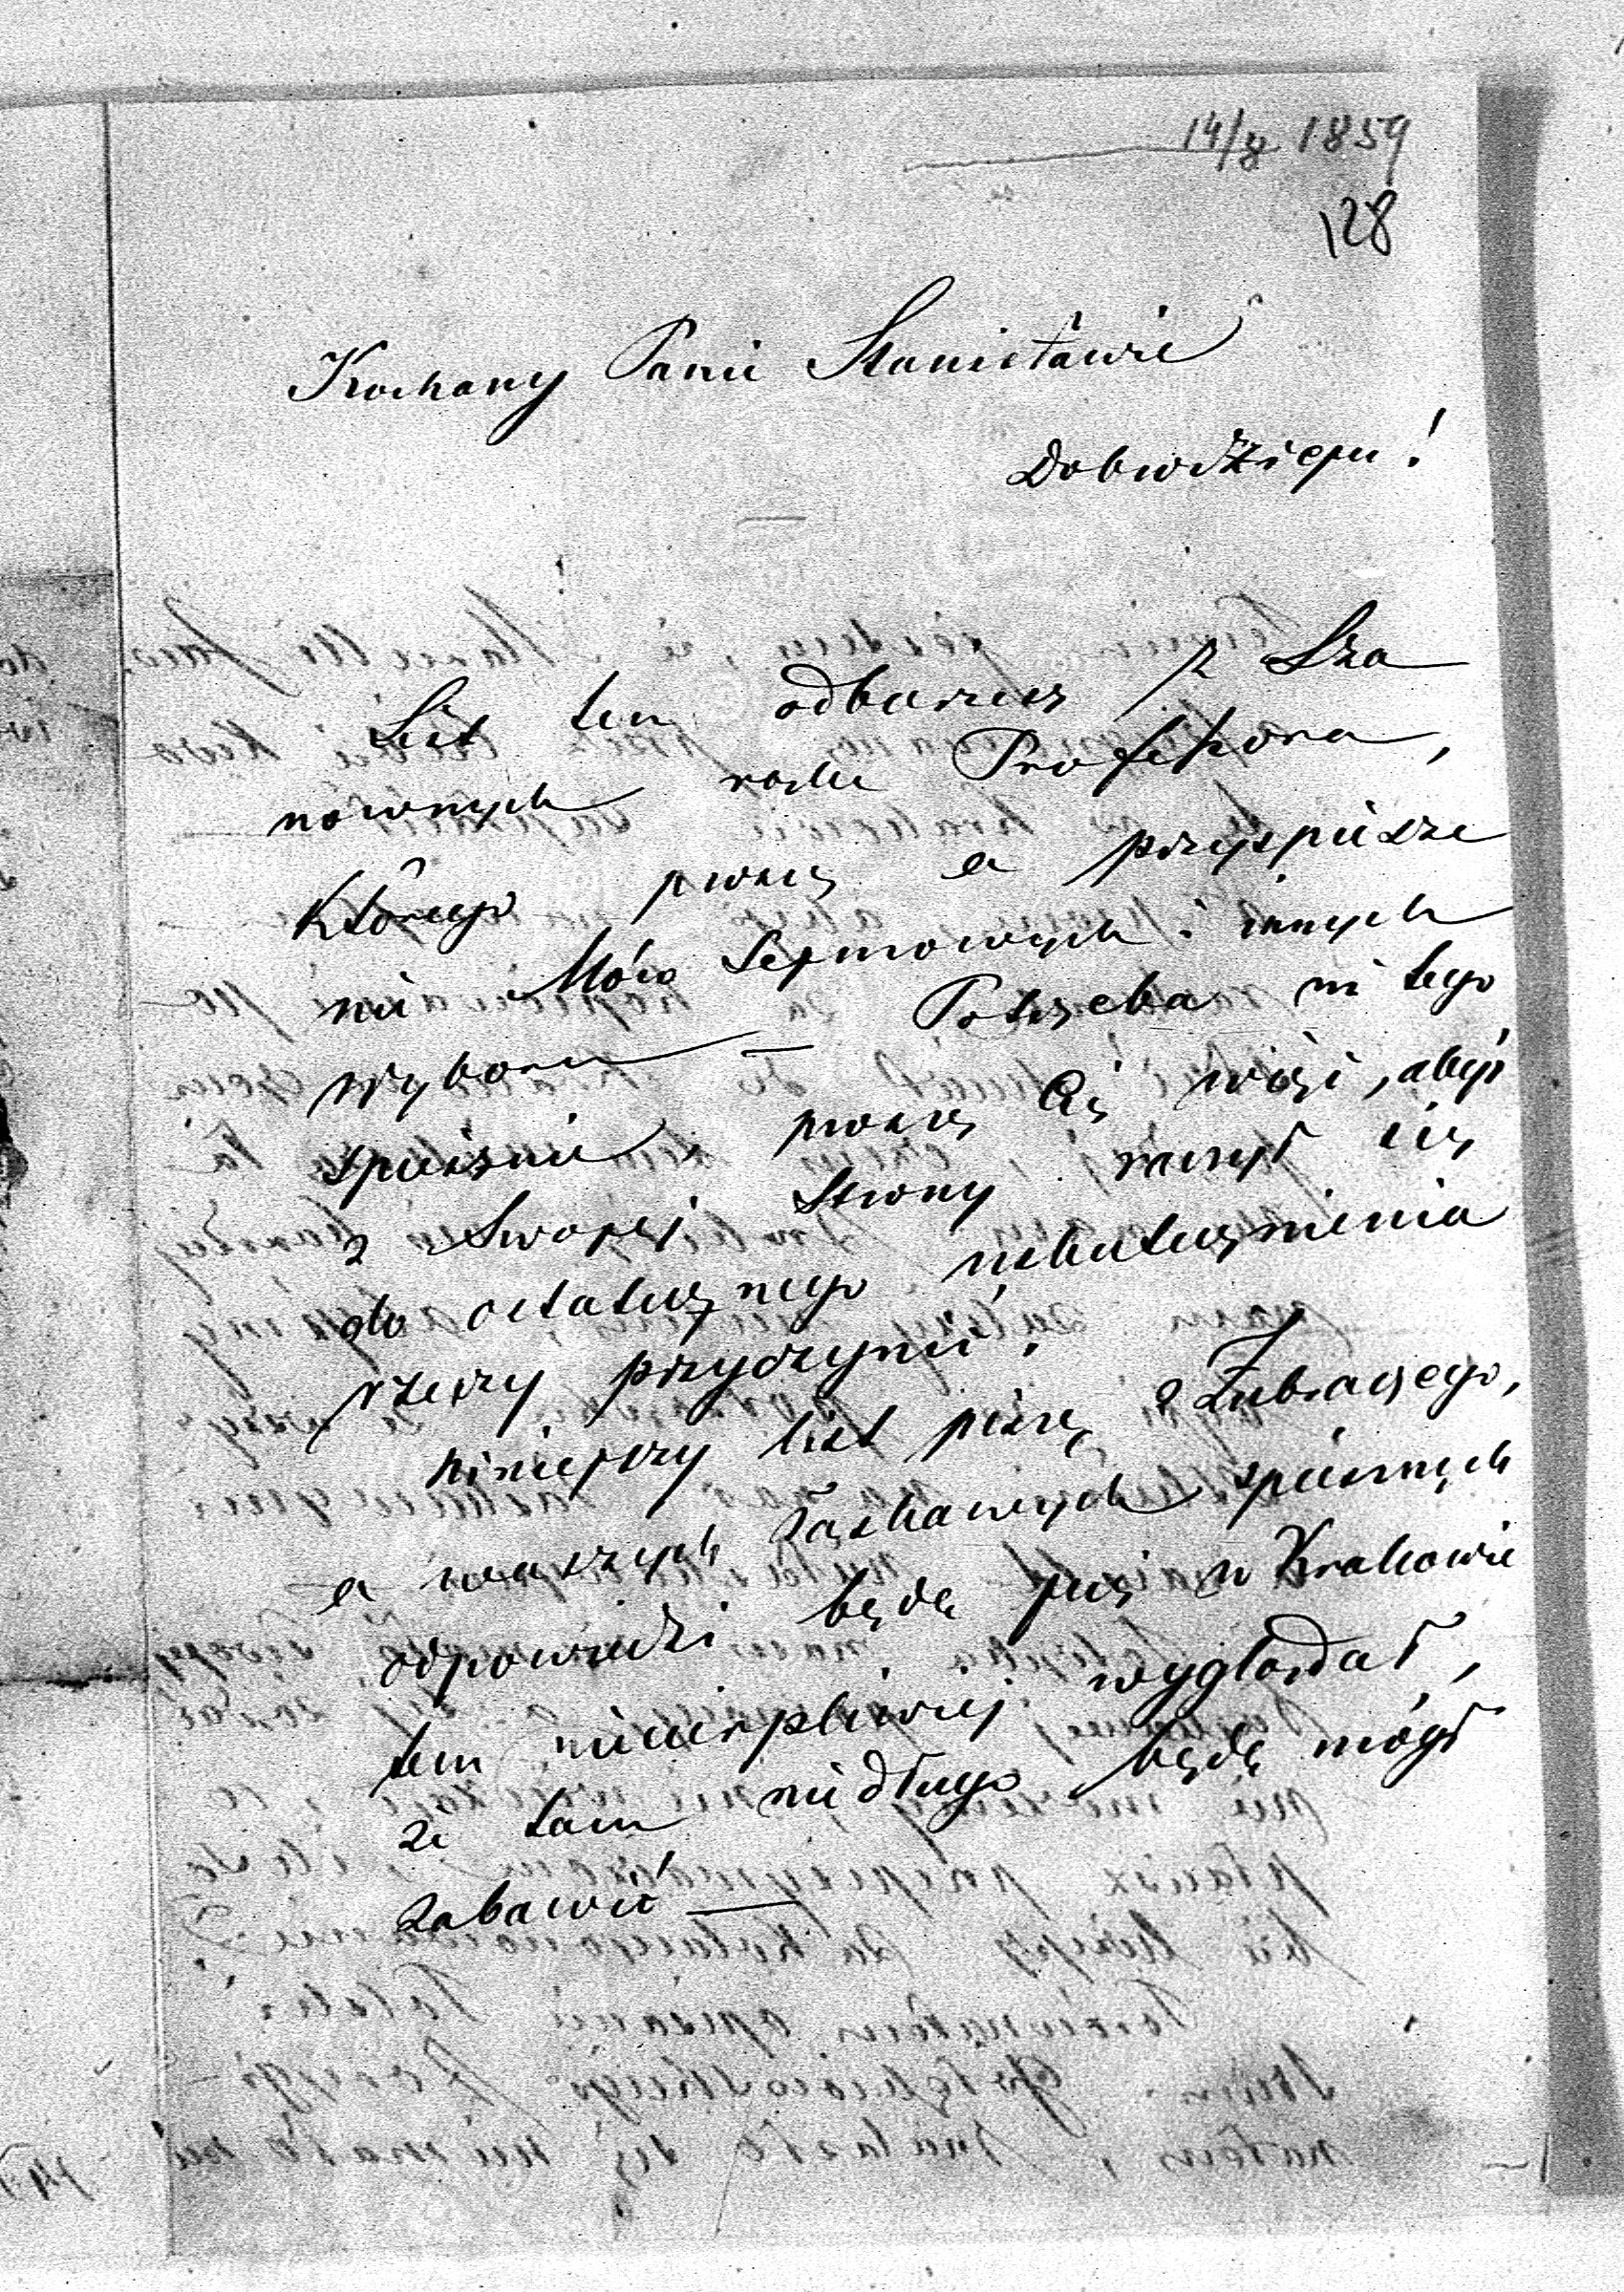 14/8 1859
128
Kochany Panie Stanisławie
Dobrodzieju!
List ten odbierzesz z Sza
nownych rąk Professora,
którego proszę o przyspiesze
nie Mów Sejmowych i innych
wyboru — Potrzeba mi tego
spiesznie, proszę Cię więc, abyś
z Swojej Strony raczył się
do ostatecznego uskutecznienia
rzeczy przyczynić.
Niniejszy list piszę z Zubrzego,
a waszych łaskawych spiesznych
odpowiedzi będę już w Krakowie
tem niecierpliwiej wyglądał,
że tam niedługo będę mógł
zabawić —